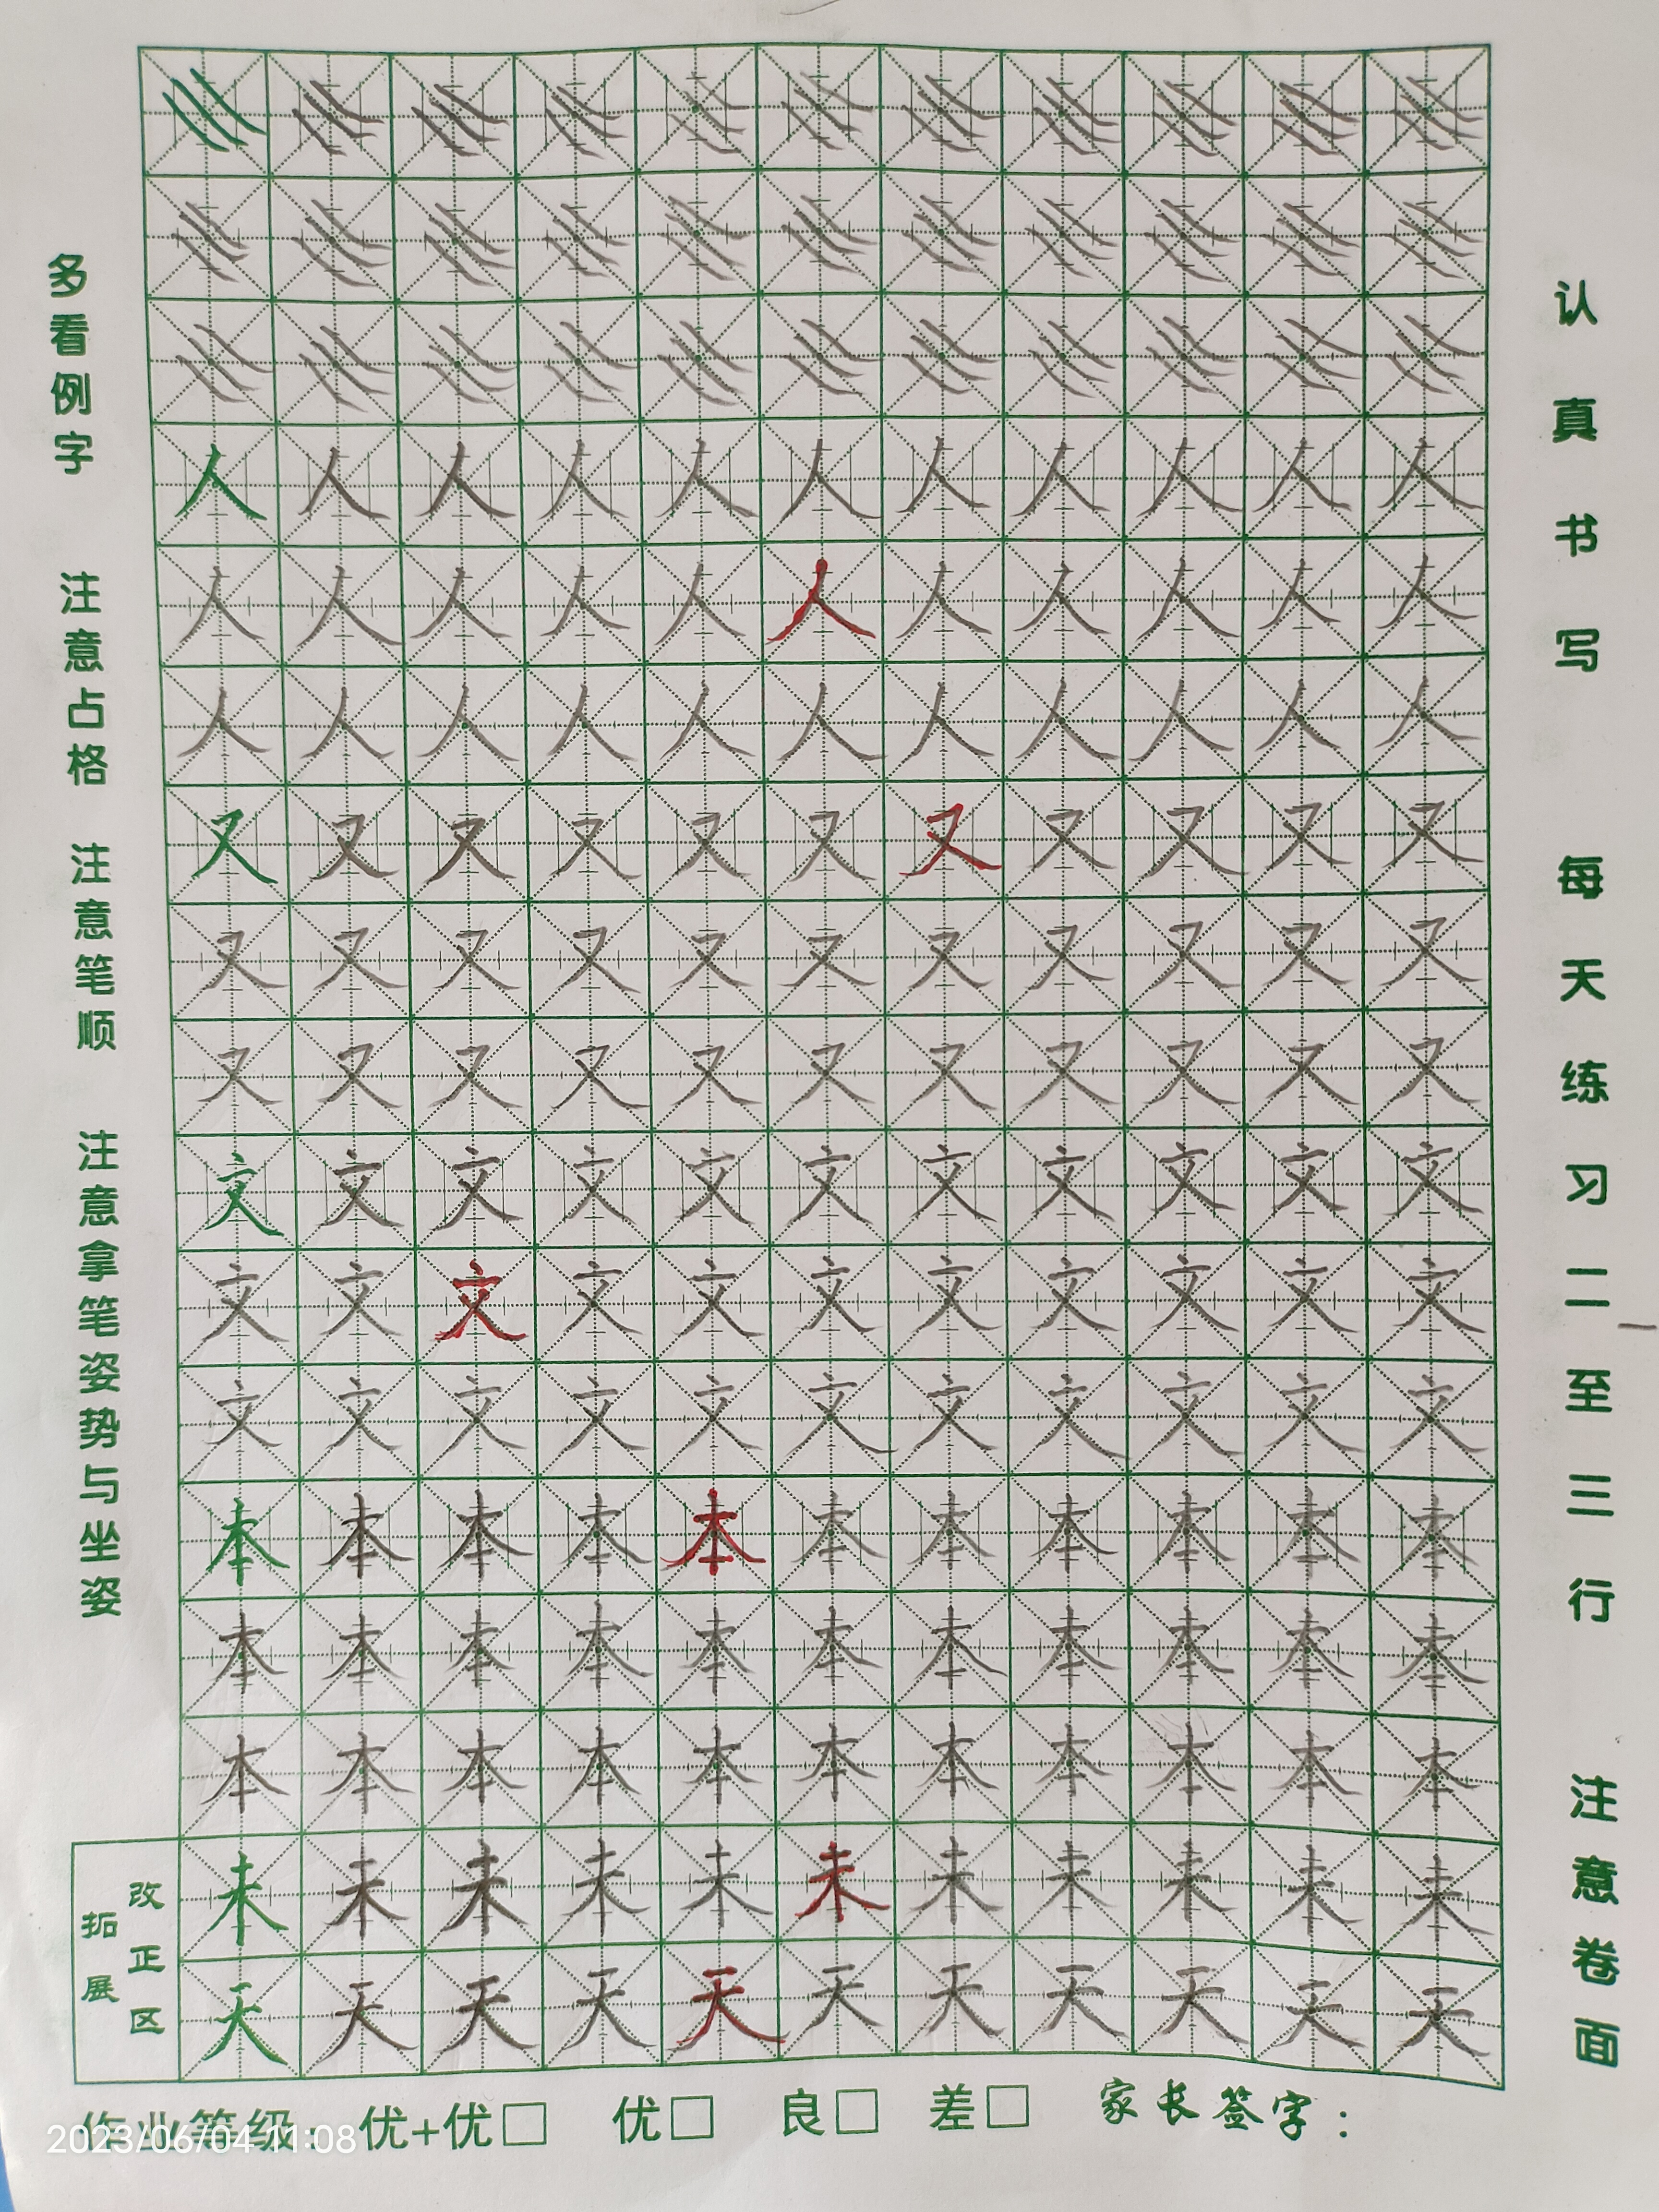 多看例字 注意占格 注意笔顺 注意拿笔姿势与坐姿
人 人 人 人 人 人 人 人 人 人 人
人 人 人 人 人 人 人 人 人 人 人
人 人 人 人 人 人 人 人 人 人 人
又 又 又 又 又 又 又 又 又 又 又
又 又 又 又 又 又 又 又 又 又 又
又 又 又 又 又 又 又 又 又 又 又
文 文 文 文 文 文 文 文 文 文 文
文 文 文 文 文 文 文 文 文 文 文
文 文 文 文 文 文 文 文 文 文 文
本 本 本 本 本 本 本 本 本 本 本
本 本 本 本 本 本 本 本 本 本 本
本 本 本 本 本 本 本 本 本 本 本
改正区
拓展
未 未 未 未 未 未 未 未 未 未 未
天 天 天 天 天 天 天 天 天 天 天
认真书写 每天练习二至三行 注意卷面
作业等级: 优+优□ 优□ 良□ 差□ 家长签字:
2023/06/04 11:08